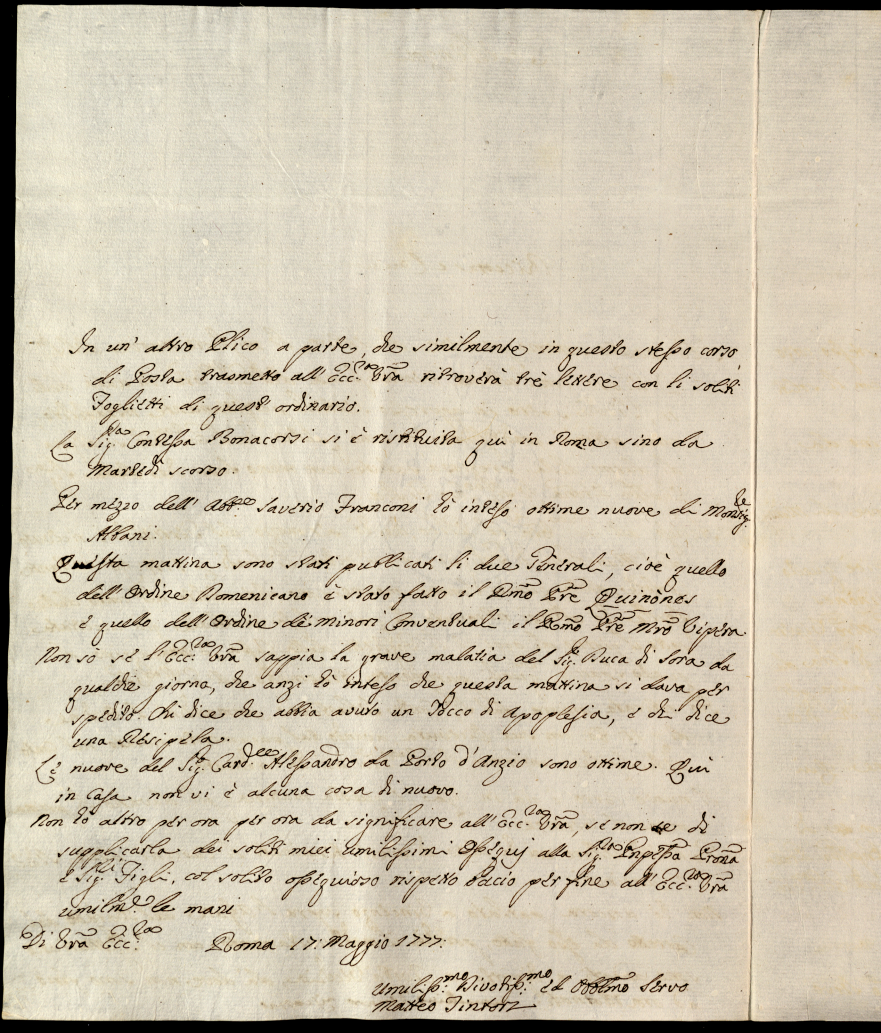 In un' altro Plico a parte, che similmente in questo stesso corso
di Posta trasmetto all' Ecc.za Vrã ritroverà trè lettere con li soliti
Foglietti di quest' ordinario.
La Sig.ra Contessa Bonacorsi si è ristituita quì in Roma sino da
Martedì scorso.
Per mezzo dell' Abb.e Saverio Franconi hò inteso ottime nuove di Monsig.re
Albani.
Questa mattina sono stati publicati li due Generali, cioè quello
dell' Ordine Domenicano è stato fatto il Rmõ Prẽ Quinònes
è quello dell' Ordine de minori Conventuali il Rmõ Prẽ Mrõ Vipera
Non sò se l' Ecc.za Vrã sappia la grave malatia del Sig. Duca di Sora da
qualche giorno, che anzi hò inteso che questa mattina si dava per
spedito. Chi dice che abbia avuto un Tocco di Apoplesia, e chi dice
una Resipela.
Le nuove del Sig. Card.ee Alessandro da Porto d'Anzio sono ottime. Quì
in Casa non vi è alcuna cosa di nuovo.
Non hò altro per ora per ora da significare all' Ecc.za Vrã, se non che di
supplicarla dei soliti miei umilissimi Ossequj alla Sig.ra Pnpessa Pronã
e Sig.ri Figli, col solito ossequioso rispetto bacio per fine all' Ecc.za Vrã
umilm.e le mani
Di Vrã Ecc.za Roma 17: Maggio 1777:
Umiliss.mo Divotiss.mo ed Obblmo Servo
Matteo Tintori